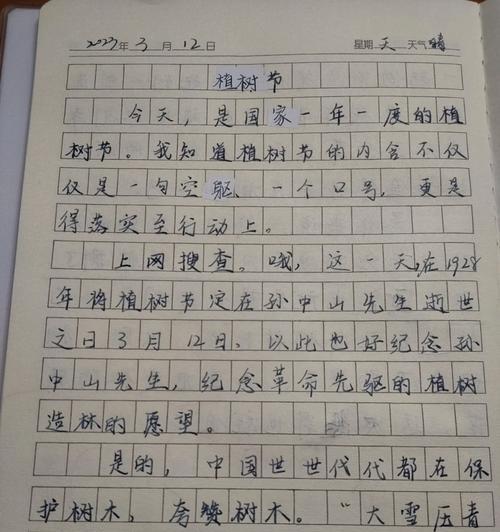 2023年3月12日 星期天 天气晴
植树节
今天，是国家一年一度的植
树节。我知道植树节的内含不仅
仅是一句空驱、一个口号，更是
得落实至行动上。
上网搜查。哦，这一天，在1928
年将植树节定在孙中山先生逝世
之日3月12日，以此也好纪念孙
中山先生，纪念革命先驱的植树
造林的愿望。
是的，中国世世代代都在保
护树木，夸赞树木。“大雪压青